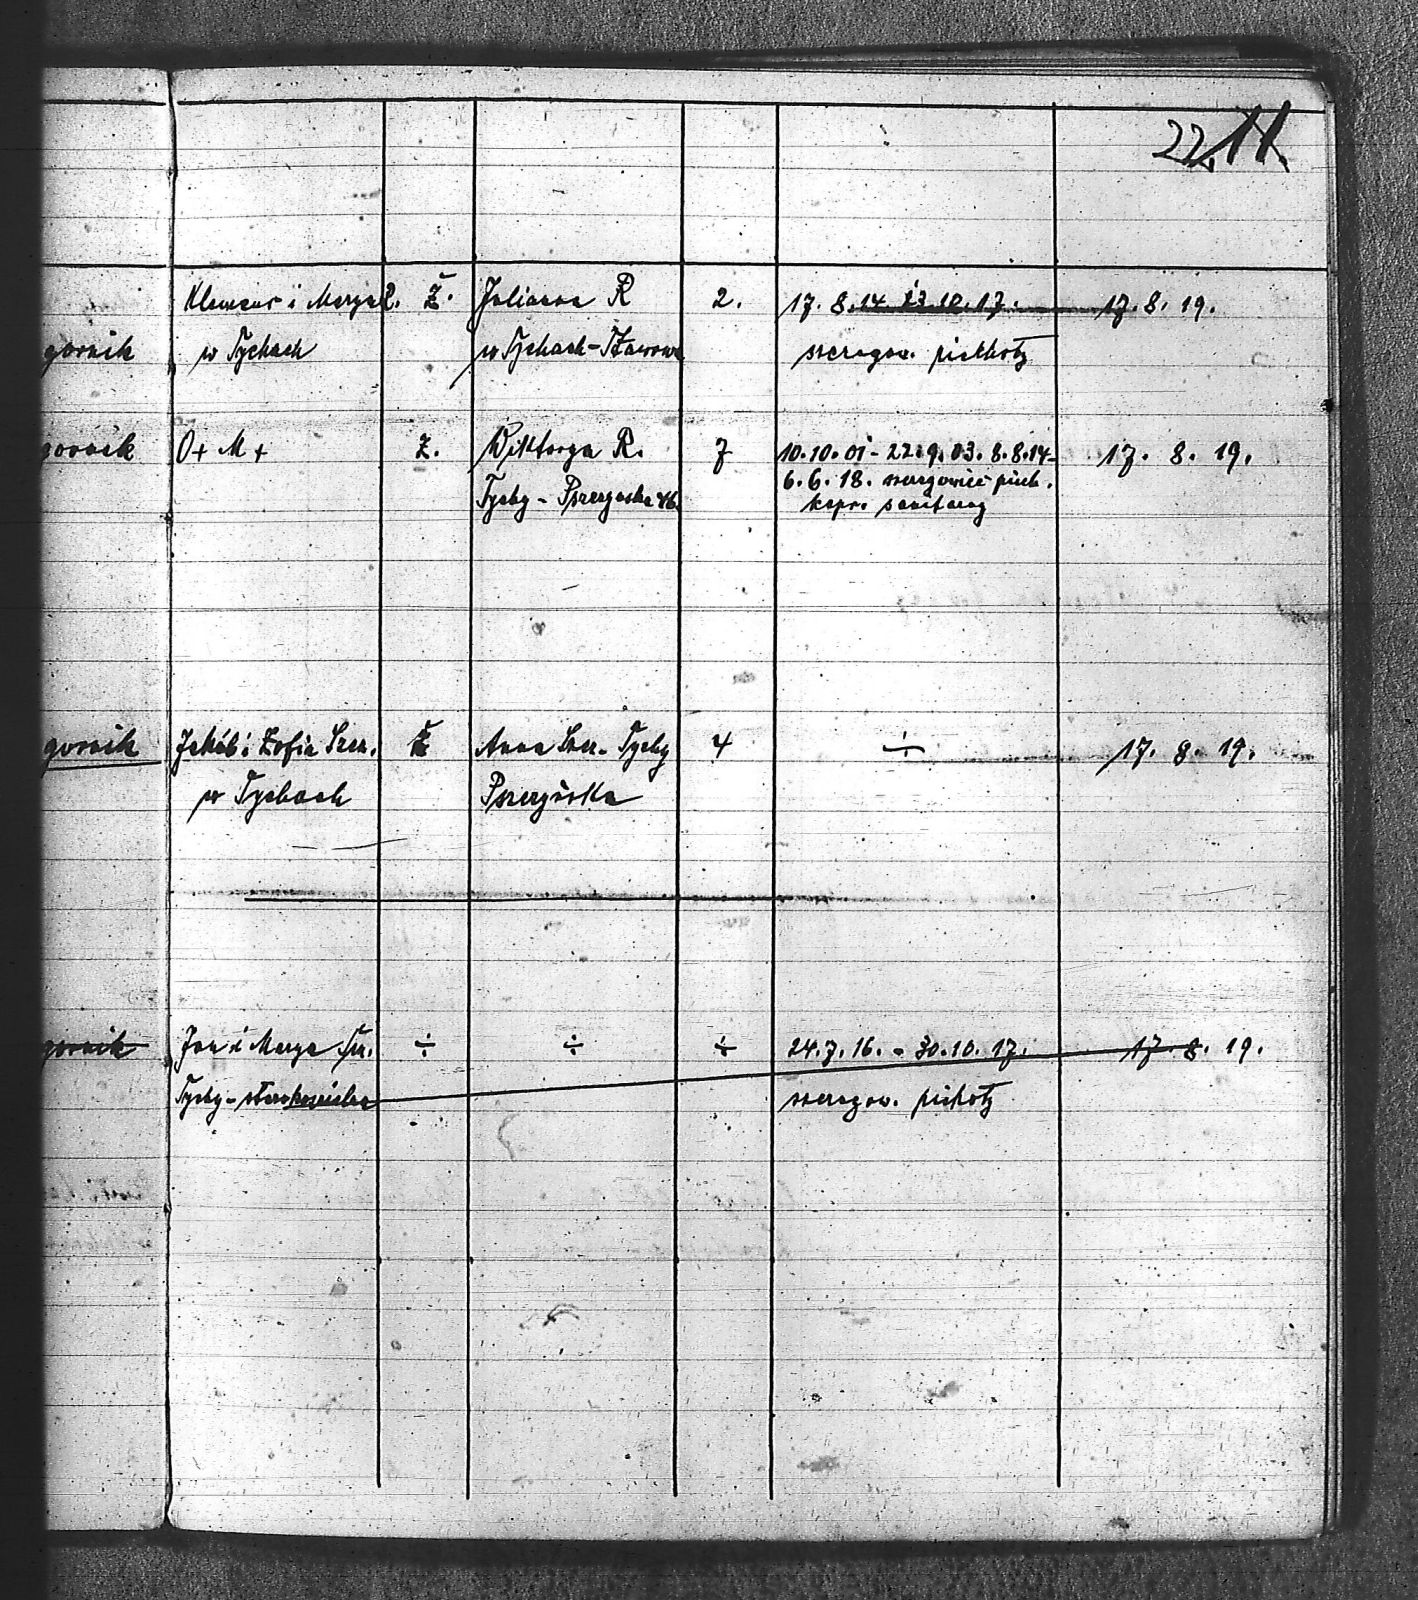 22. 11.
Klemens i Marya R. ż. Julianna R 2. 17. 8. 14 23. 10. 17. 17. 8. 19.
gornik w Tychach w Tychach - szeregow. piechoty
gornik O+ M+ ż. Wiktorya R. 7 10. 10. 01 - 22. 9. 03. 8. 8. 14 - 17. 8. 19.
6. 6. 18. szeregowiec piech.
Tychy - Pszczyńska 46. kapr. sanitarny
gornik Jakób i Zofia Szcz. ż Anna Szcz. Tychy 4 ÷ 17. 8. 19.
w Tychach Pszczyńska
gornik Jan i Marya ÷ ÷ ÷ 24. 7. 16. - 30. 10. 17. 17. 8. 19.
Tychy - szeregow. piechoty